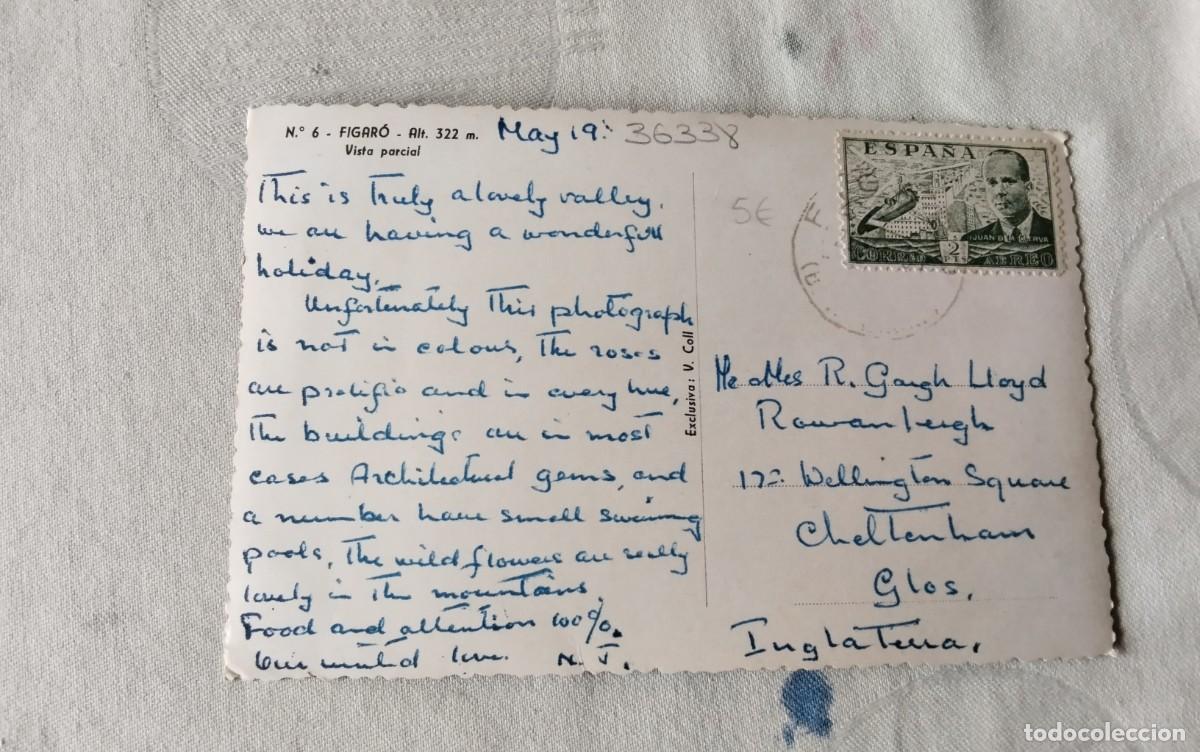 N.º 6 - FIGARÓ - Alt. 322 m.
Vista parcial
May 19.
36338
This is Truly a lovely valley.
we are having a wonderfull
holiday.
Unfortunately This photograph
is not in colour, The roses
are prolific and in every hue,
The buildings are in most
cases Architectural gems, and
a number have small swimming
pools, The wild flowers are really
lovely in The mountains.
Food and attention 100%.
Our united love. N. J.
Exclusiva: V. Coll
5€
ESPAÑA
JUAN DE LA CIERVA
CORREO 2 PTS AEREO
R. Gough Lloyd
Rowanleigh
17 Wellington Square
Cheltenham
Glos.
Inglaterra.
todocoleccion